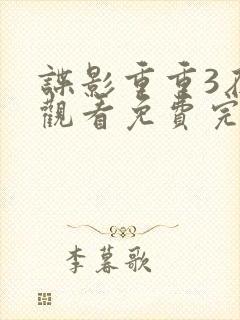 諜影重重3
觀看免費完
李暮歌